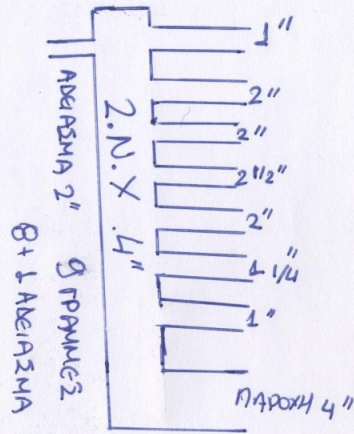 1"
2"
2"
2 1/2"
2"
1 1/4"
1"
ΠΑΡΟΧΗ 4"
2.N.X .4"
ΑΔΕΙΑΣΜΑ 2"
9 ΓΡΑΜΜΕΣ
8+1 ΑΔΕΙΑΣΜΑ